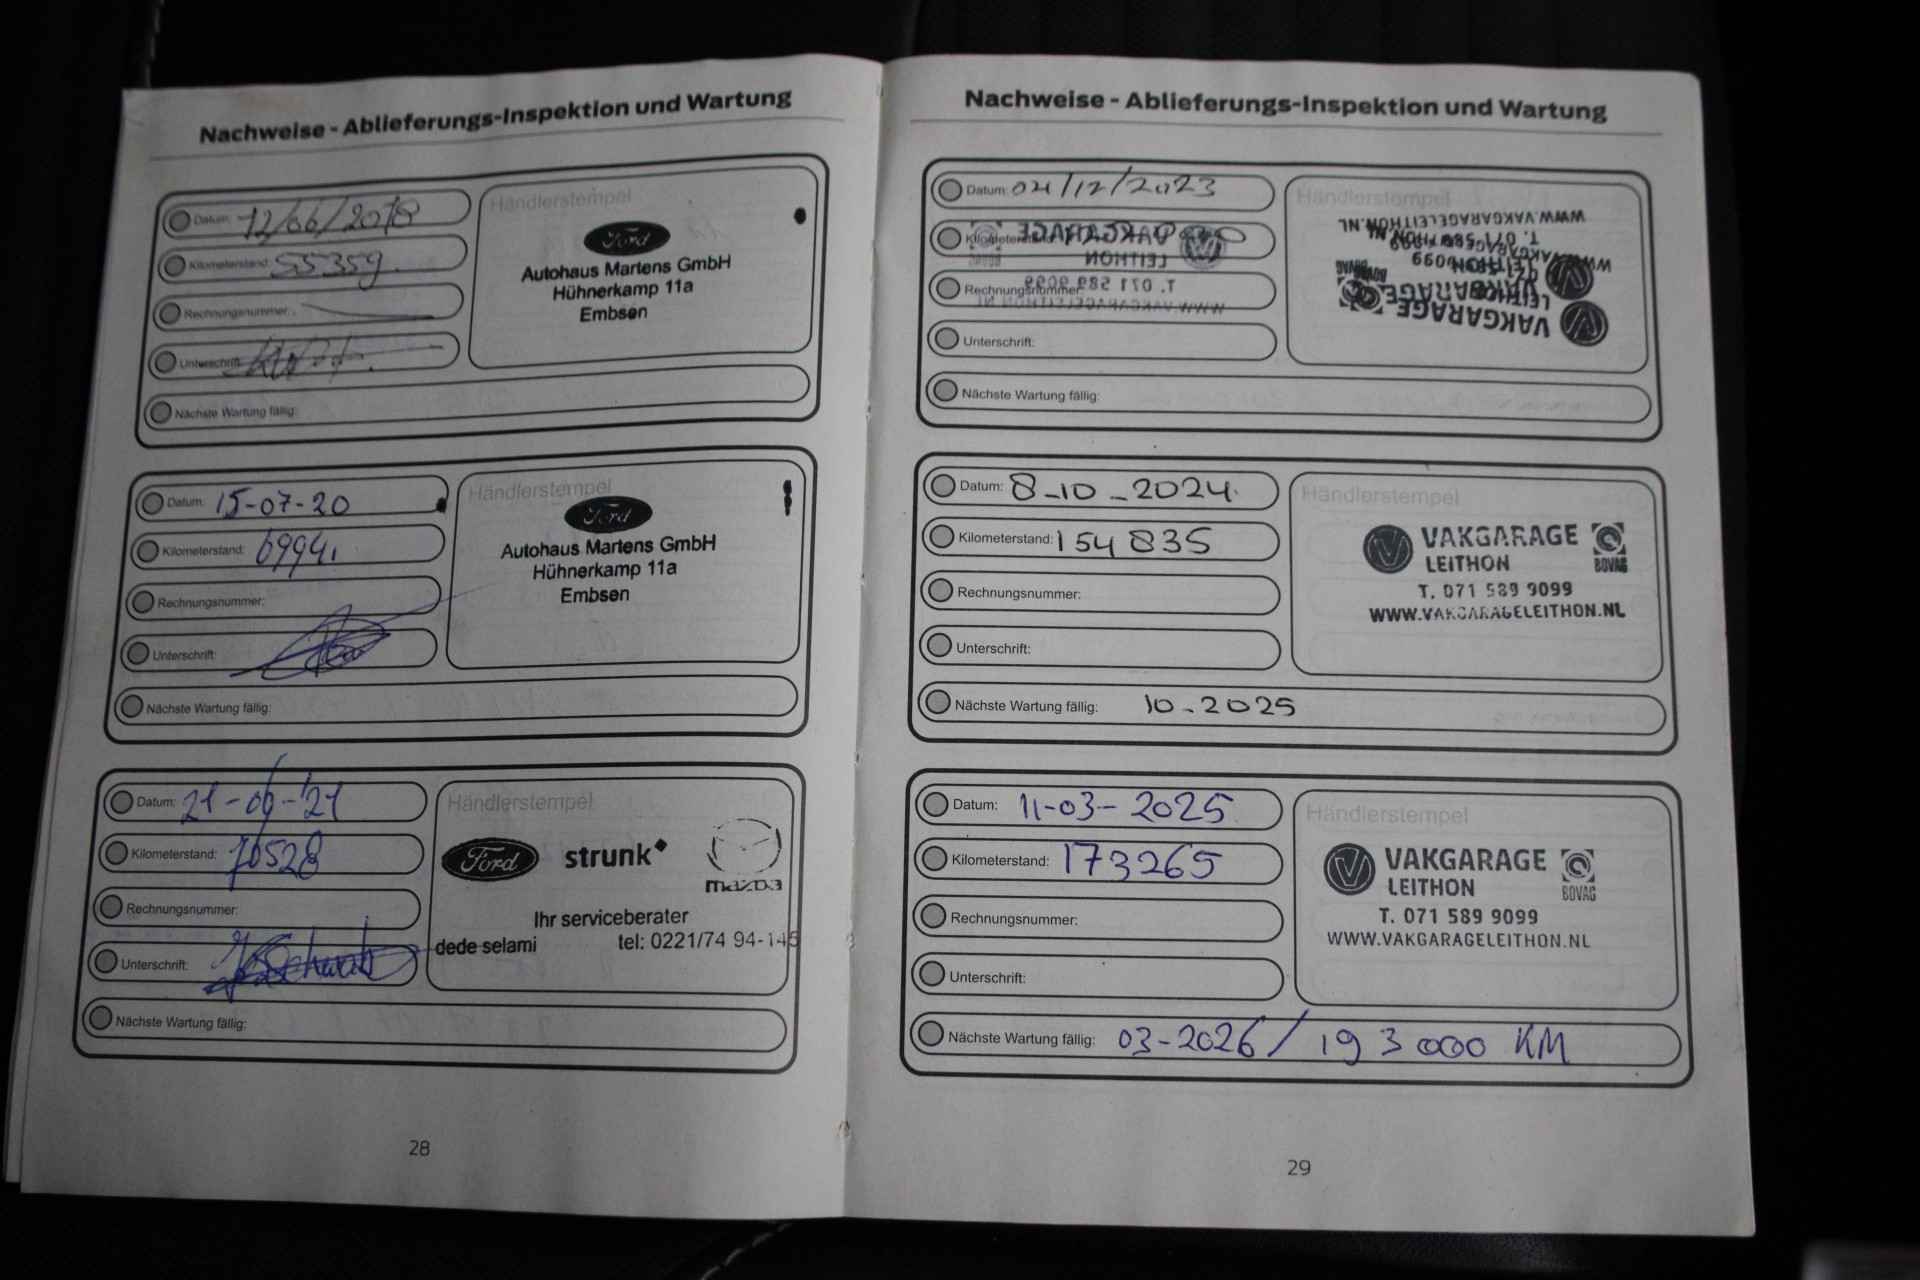 Nachweise - Ablieferungs-Inspektion und Wartung
Datum: 12/06/2018
Kilometerstand: 55359
Rechnungsnummer:
Unterschrift:
Nächste Wartung fällig:
Händlerstempel
Ford
Autohaus Martens GmbH
Hühnerkamp 11a
Embsen
Datum: 15-07-20
Kilometerstand: 69941
Rechnungsnummer:
Unterschrift:
Nächste Wartung fällig:
Händlerstempel
Ford
Autohaus Martens GmbH
Hühnerkamp 11a
Embsen
Datum: 21-06-'21
Kilometerstand: 70528
Rechnungsnummer:
Unterschrift:
Nächste Wartung fällig:
Händlerstempel
Ford strunk mazda
Ihr serviceberater
dede selami tel: 0221/74 94-145
28
Nachweise - Ablieferungs-Inspektion und Wartung
Datum: 04/12/2023
Kilometerstand:
Rechnungsnummer:
Unterschrift:
Nächste Wartung fällig:
Händlerstempel
VAKGARAGE
LEITHON
T. 071 589 9099
WWW.VAKGARAGELEITHON.NL
Datum: 8-10-2024
Kilometerstand: 154835
Rechnungsnummer:
Unterschrift:
Nächste Wartung fällig: 10-2025
Händlerstempel
VAKGARAGE
LEITHON
BOVAG
T. 071 589 9099
WWW.VAKGARAGELEITHON.NL
Datum: 11-03-2025
Kilometerstand: 173265
Rechnungsnummer:
Unterschrift:
Nächste Wartung fällig: 03-2026 / 193000 KM
Händlerstempel
VAKGARAGE
LEITHON
BOVAG
T. 071 589 9099
WWW.VAKGARAGELEITHON.NL
29